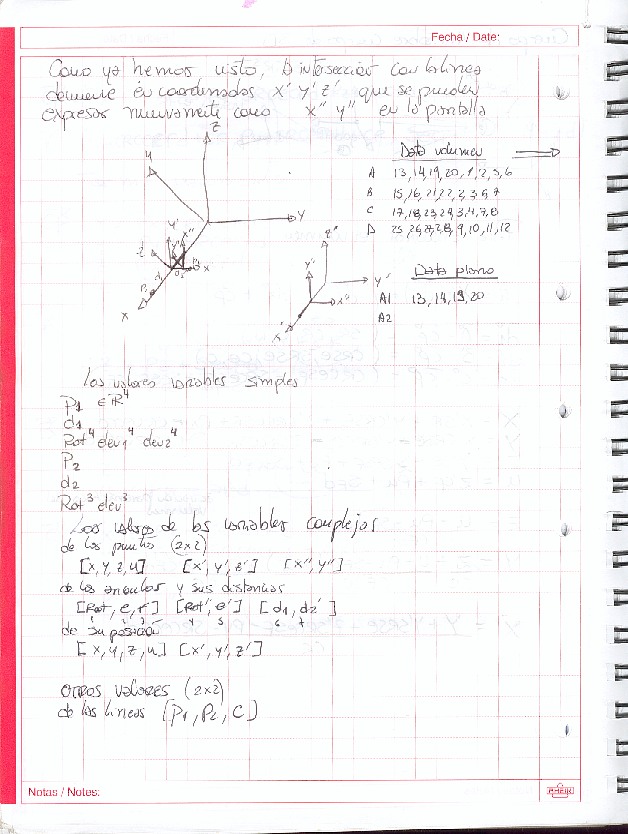 Fecha / Date:
Como ya hemos visto, la intersección con las líneas
deviene en coordenadas x' y' z' que se pueden
expresar nuevamente como x'' y'' en la pantalla
Data volumen
A 13, 14, 19, 20, 1, 2, 5, 6
B 15, 16, 21, 22, 2, 3, 6, 7
C 17, 18, 23, 24, 3, 4, 7, 8
D 25, 26, 27, 28, 9, 10, 11, 12
Data plano
A1 13, 14, 19, 20
A2
z
u
y
x
z''
y''
y'
x''
x'
Los valores variables simples
P1 ∈ R4
d1
Rot4 elev14 elev24
P2
d2
Rot3 elev3
Los valores de las variables complejas
de los puntos (2x2)
[x, y, z, u] [x', y', z'] [x'', y'']
de los ángulos y sus distancias
[Rot, e, r] [Rot', e'] [d1, d2']
de su posición
[x, y, z, u] [x', y', z']
OTROS VALORES (2x2)
de las líneas [P1, P2, C]
Notas / Notes: